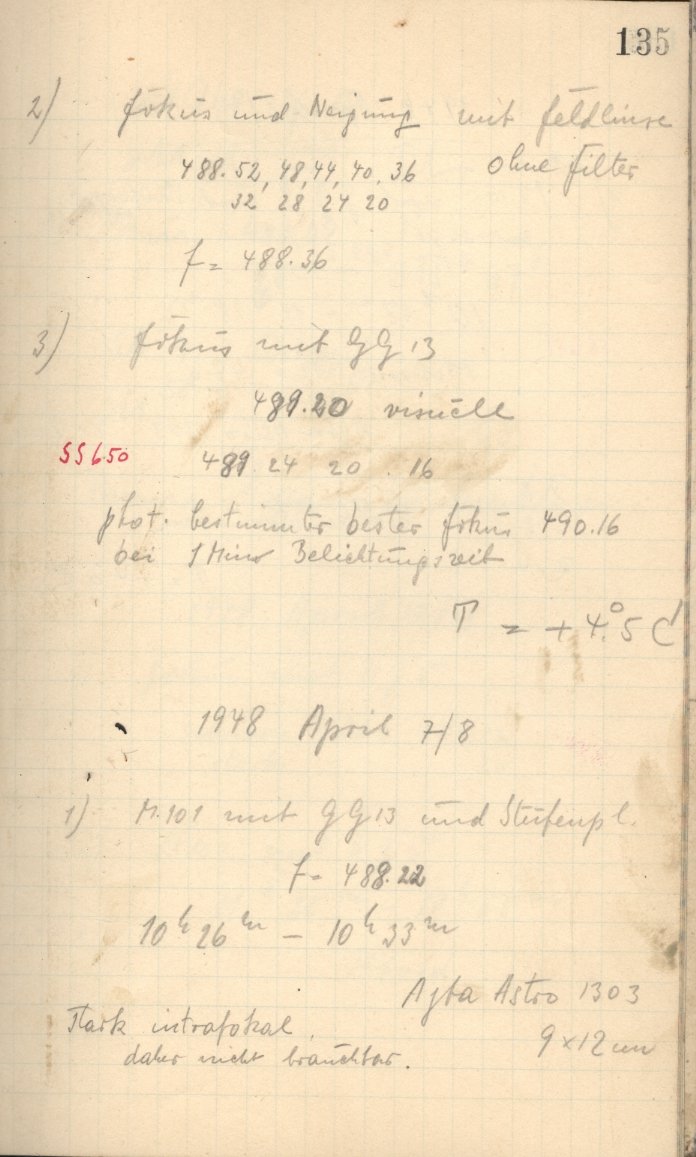 135
2) Fokus und Neigung mit Feldlinse
488.52, 48, 44, 40. 36 ohne Filter
32 28 24 20
f = 488.36
3) Fokus mit GG 13
489.20 visuell
SS650 489.24 20 . 16
phot. bestimmter bester Fokus 490.16
bei 1 Min Belichtungszeit
T = + 4.°5 C
1948 April 7/8
1) M.101 mit GG13 und Stufenpl.
f = 488.22
10h 26m – 10h 33m
Agfa Astro 1303
Stark intrafokal. 9x12 cm
daher nicht brauchbar.